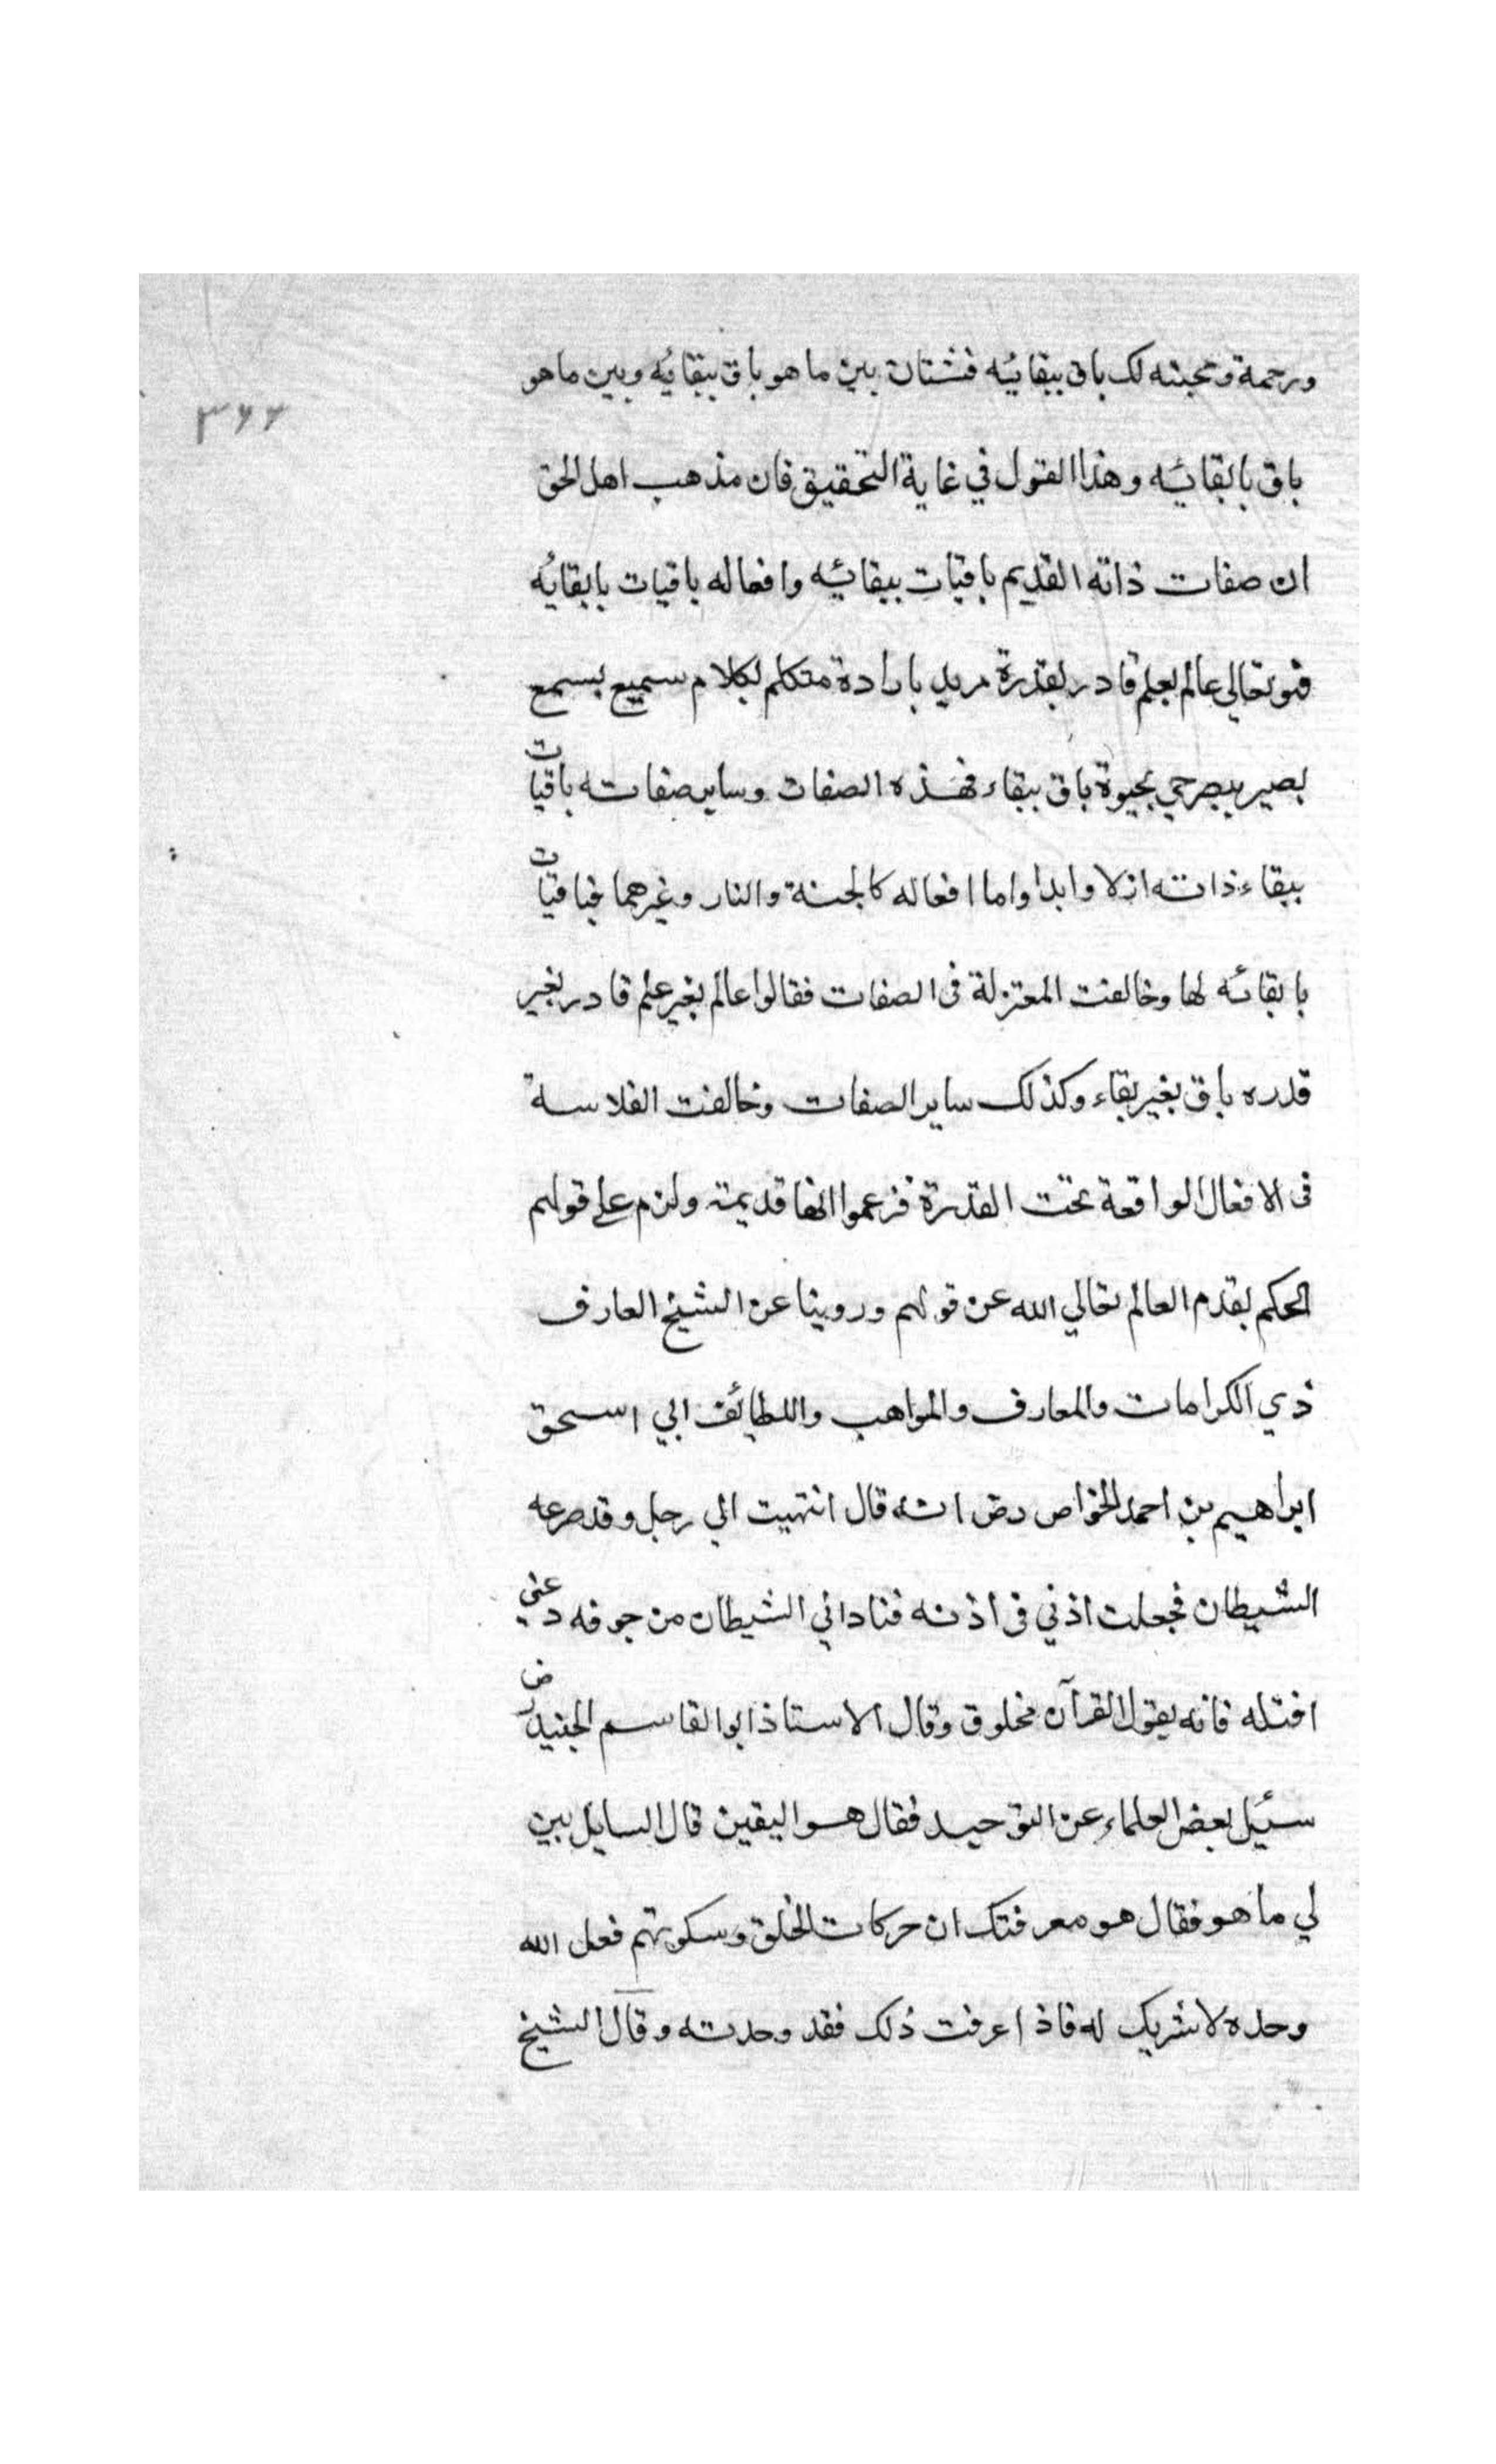 ورحمة ومحبته لك باق ببقائه فشتان بين ما هو باق ببقائه وبين ما هو
٣٦٦
باق بابقائه وهذا القول في غاية التحقيق فان مذهب اهل الحق
ان صفات ذاته القديم باقيات ببقائه وافعاله باقيات بابقائه
فهو تعالي عالم بعلم قادر بقدرة مريد بارادة متكلم بكلام سميع بسمع
بصير ببصر حي بحيوة باق ببقاء فهذه الصفات وساير صفاته باقيات
ببقاء ذاته ازلا وابدا واما افعاله كالجنة والنار وغيرهما فباقيات
بابقائه لها وخالفت المعتزلة فى الصفات فقالوا عالم بغير علم قادر بغير
قدره باق بغير بقاء وكذلك ساير الصفات وخالفت الفلاسة
فى الافعال الواقعة تحت القدرة فزعموا انها قديمة ولزم علي قولهم
الحكم بقدم العالم تعالي الله عن قولهم وروينا عن الشيخ العارف
ذي الكرامات والمعارف والمواهب واللطائف ابي اسحق
ابراهيم بن احمد الخواص رض انه قال انتهيت الي رجل وقد صرعه
الشيطان فجعلت اذني فى اذنه فناداني الشيطان من جوفه دعني
اقتله فانه يقول القرآن مخلوق وقال الاستاذ ابو القاسم الجنيد رض
سئيل بعض العلماء عن التوحيد فقال هو اليقين قال السايل بين
لي ما هو فقال هو معرفتك ان حركات الخلق وسكونهم فعل الله
وحده لا شريك له فاذا عرفت ذلك فقد وحدته وقال الشيخ